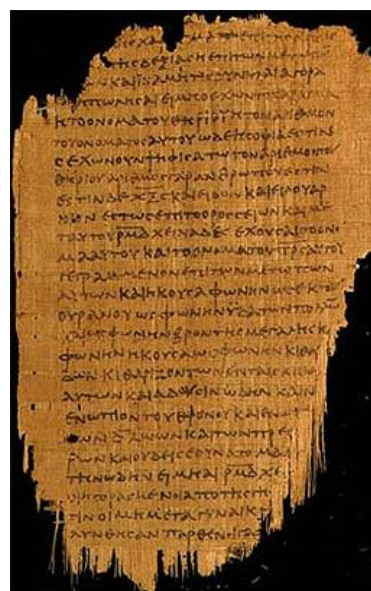 ΤΗΣΔΕΞΙΑΣΗΕΠΙΤΩΝΜΕΤΩ
ΚΑΙΙΝΑΜΗΤΙΣΔΥΝΗΤΑΙΑΓΟΡΑ
ΠΩΛΗΣΑΙΕΙΜΗΟΕΧΩΝΤΟΧΑΡΑΓΜΑ
ΗΤΟΟΝΟΜΑΤΟΥΘΗΡΙΟΥΗΤΟΝΑΡΙΘΜΟΝ
ΤΟΥΟΝΟΜΑΤΟΣΑΥΤΟΥΩΔΕΗΣΟΦΙΑΕΣΤΙΝ
ΟΕΧΩΝΟΥΝΨΗΦΙΣΑΤΩΤΟΝΑΡΙΘΜΟΝΤΟΥ
ΘΗΡΙΟΥΑΡΙΘΜΟΣΓΑΡΑΝΘΡΩΠΟΥΕΣΤΙΝ
ΕΣΤΙΝΔΕΧΞϚΚΑΙΕΙΔΟΝΚΑΙΕΙΔΟΥΑΡ
ΝΙΟΝΕΣΤΩΣΕΠΙΤΟΟΡΟΣΣΕΙΩΝΚΑΙΜΕ
ΤΑΥΤΟΥΡΜΔΧΕΙΛΙΑΔΕΣΕΧΟΥΣΑΙΤΟΟΝΟ
ΜΑΑΥΤΟΥΚΑΙΤΟΟΝΟΜΑΤΟΥΠΡΣΑΥΤΟΥ
ΓΕΓΡΑΜΜΕΝΟΝΕΠΙΤΩΝΜΕΤΩΠΩΝ
ΑΥΤΩΝΚΑΙΗΚΟΥΣΑΦΩΝΗΝΩΣΕΚΤΟΥ
ΟΥΡΑΝΟΥΩΣΦΩΝΗΝΥΔΑΤΩΝΠΟΛΛΩ
ΚΑΙΩΣΦΩΝΗΝΒΡΟΝΤΗΣΜΕΓΑΛΗΣΚ
ΦΩΝΗΝΗΚΟΥΣΑΩΣΦΩΝΗΝΚΙΘΑ
ΔΩΝΚΙΘΑΡΙΖΟΝΤΩΝΕΝΤΑΙΣΚΙΘΑ
ΑΥΤΩΝΚΑΙΑΔΟΥΣΙΝΩΔΗΝΚΑΙΝ
ΕΝΩΠΙΟΝΤΟΥΘΡΟΝΟΥΚΑΙΕΝΩΠ
ΤΩΝΔΖΩΩΝΚΑΙΤΩΝΠΡΕΣ
ΡΩΝΚΑΙΟΥΔΕΙΣΕΔΥΝΑΤΟΜΑΘ
ΤΗΝΩΔΗΝΕΙΜΗΑΙΡΜΔΧΕ
ΟΙΗΓΟΡΑΣΜΕΝΟΙΑΠΟΤΗΣΓΗ
ΤΙΝΟΙΜΗΜΕΤΑΓΥΝΑΙΚ
ΛΥΝΘΗΣΑΝΠΑΡΘΕΝΟΙΓΑΡ